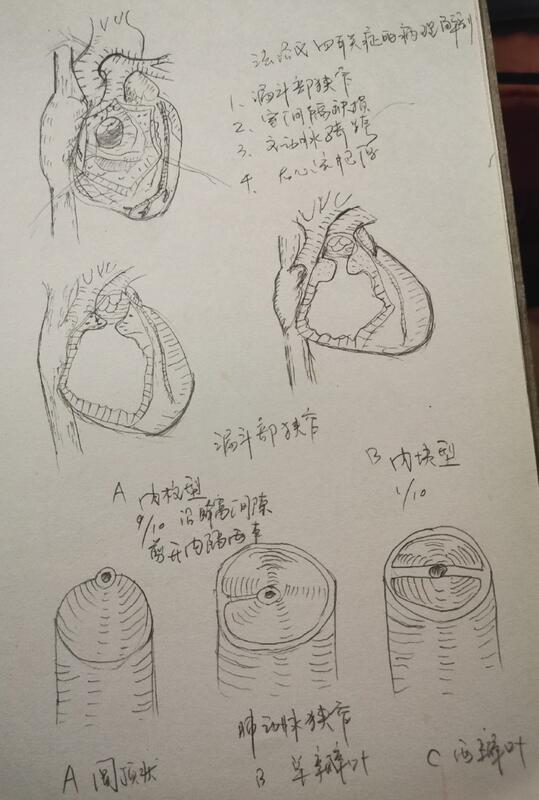 法洛氏四联症的病理解剖
1、漏斗部狭窄
2、室间隔缺损
3、主动脉骑跨
4、右心室肥厚
漏斗部狭窄
A 肉柱型
9/10 沿隔离间隙
剪开肉隔两束
B 肉块型
1/10
肺动脉狭窄
A 圆顶状
B 单瓣叶
C 两瓣叶